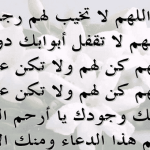 اللهم لا تخيب لهم رجـ
هم لا تقفل أبوابك دو
هم كن لهم ولا تكن عـ
هم كن لهم ولا تكن عـ
ـك وجودك يا أرحم الـ
م هذا الدعاء ومنك ال